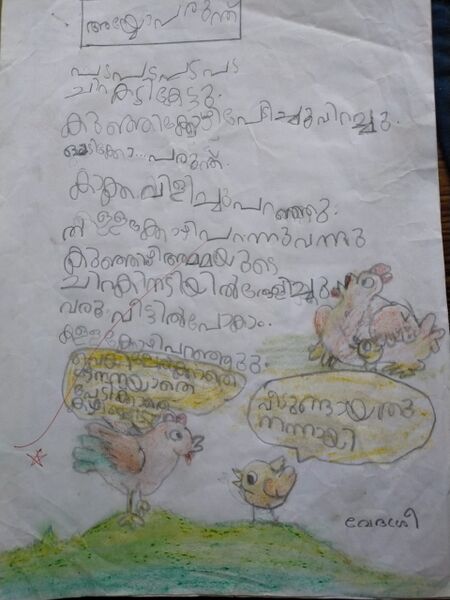 അയ്യോ പരുന്ത്
പടപടപടപട
ചിറകടികേട്ടു.
കുഞ്ഞിക്കോഴിപേടിച്ചുവിറച്ചു.
ഓടിക്കോ... പരുന്ത്.
കാക്ക വിളിച്ചുപറഞ്ഞു.
തള്ളക്കോഴിപറന്നുവന്നു
കുഞ്ഞ് അമ്മയുടെ
ചിറകിനടിയിൽഒളിച്ചു.
വരൂ വീട്ടിൽപോകാം.
തള്ളക്കോഴിപറഞ്ഞു.
നനയാതെ
പേടിക്കാതെ
വീടുണ്ടായതു
നന്നായി
വേദശ്രീ